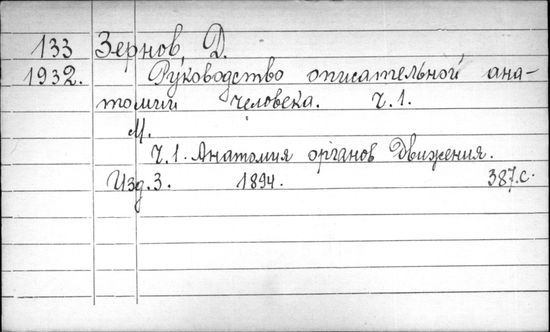 133 Зернов, Д.
1932. Руководство описательной ана-
томии человека. Ч.1.
М.
Ч.1. Анатомия органов Движения.
Изд.3. 1894. 387.с.